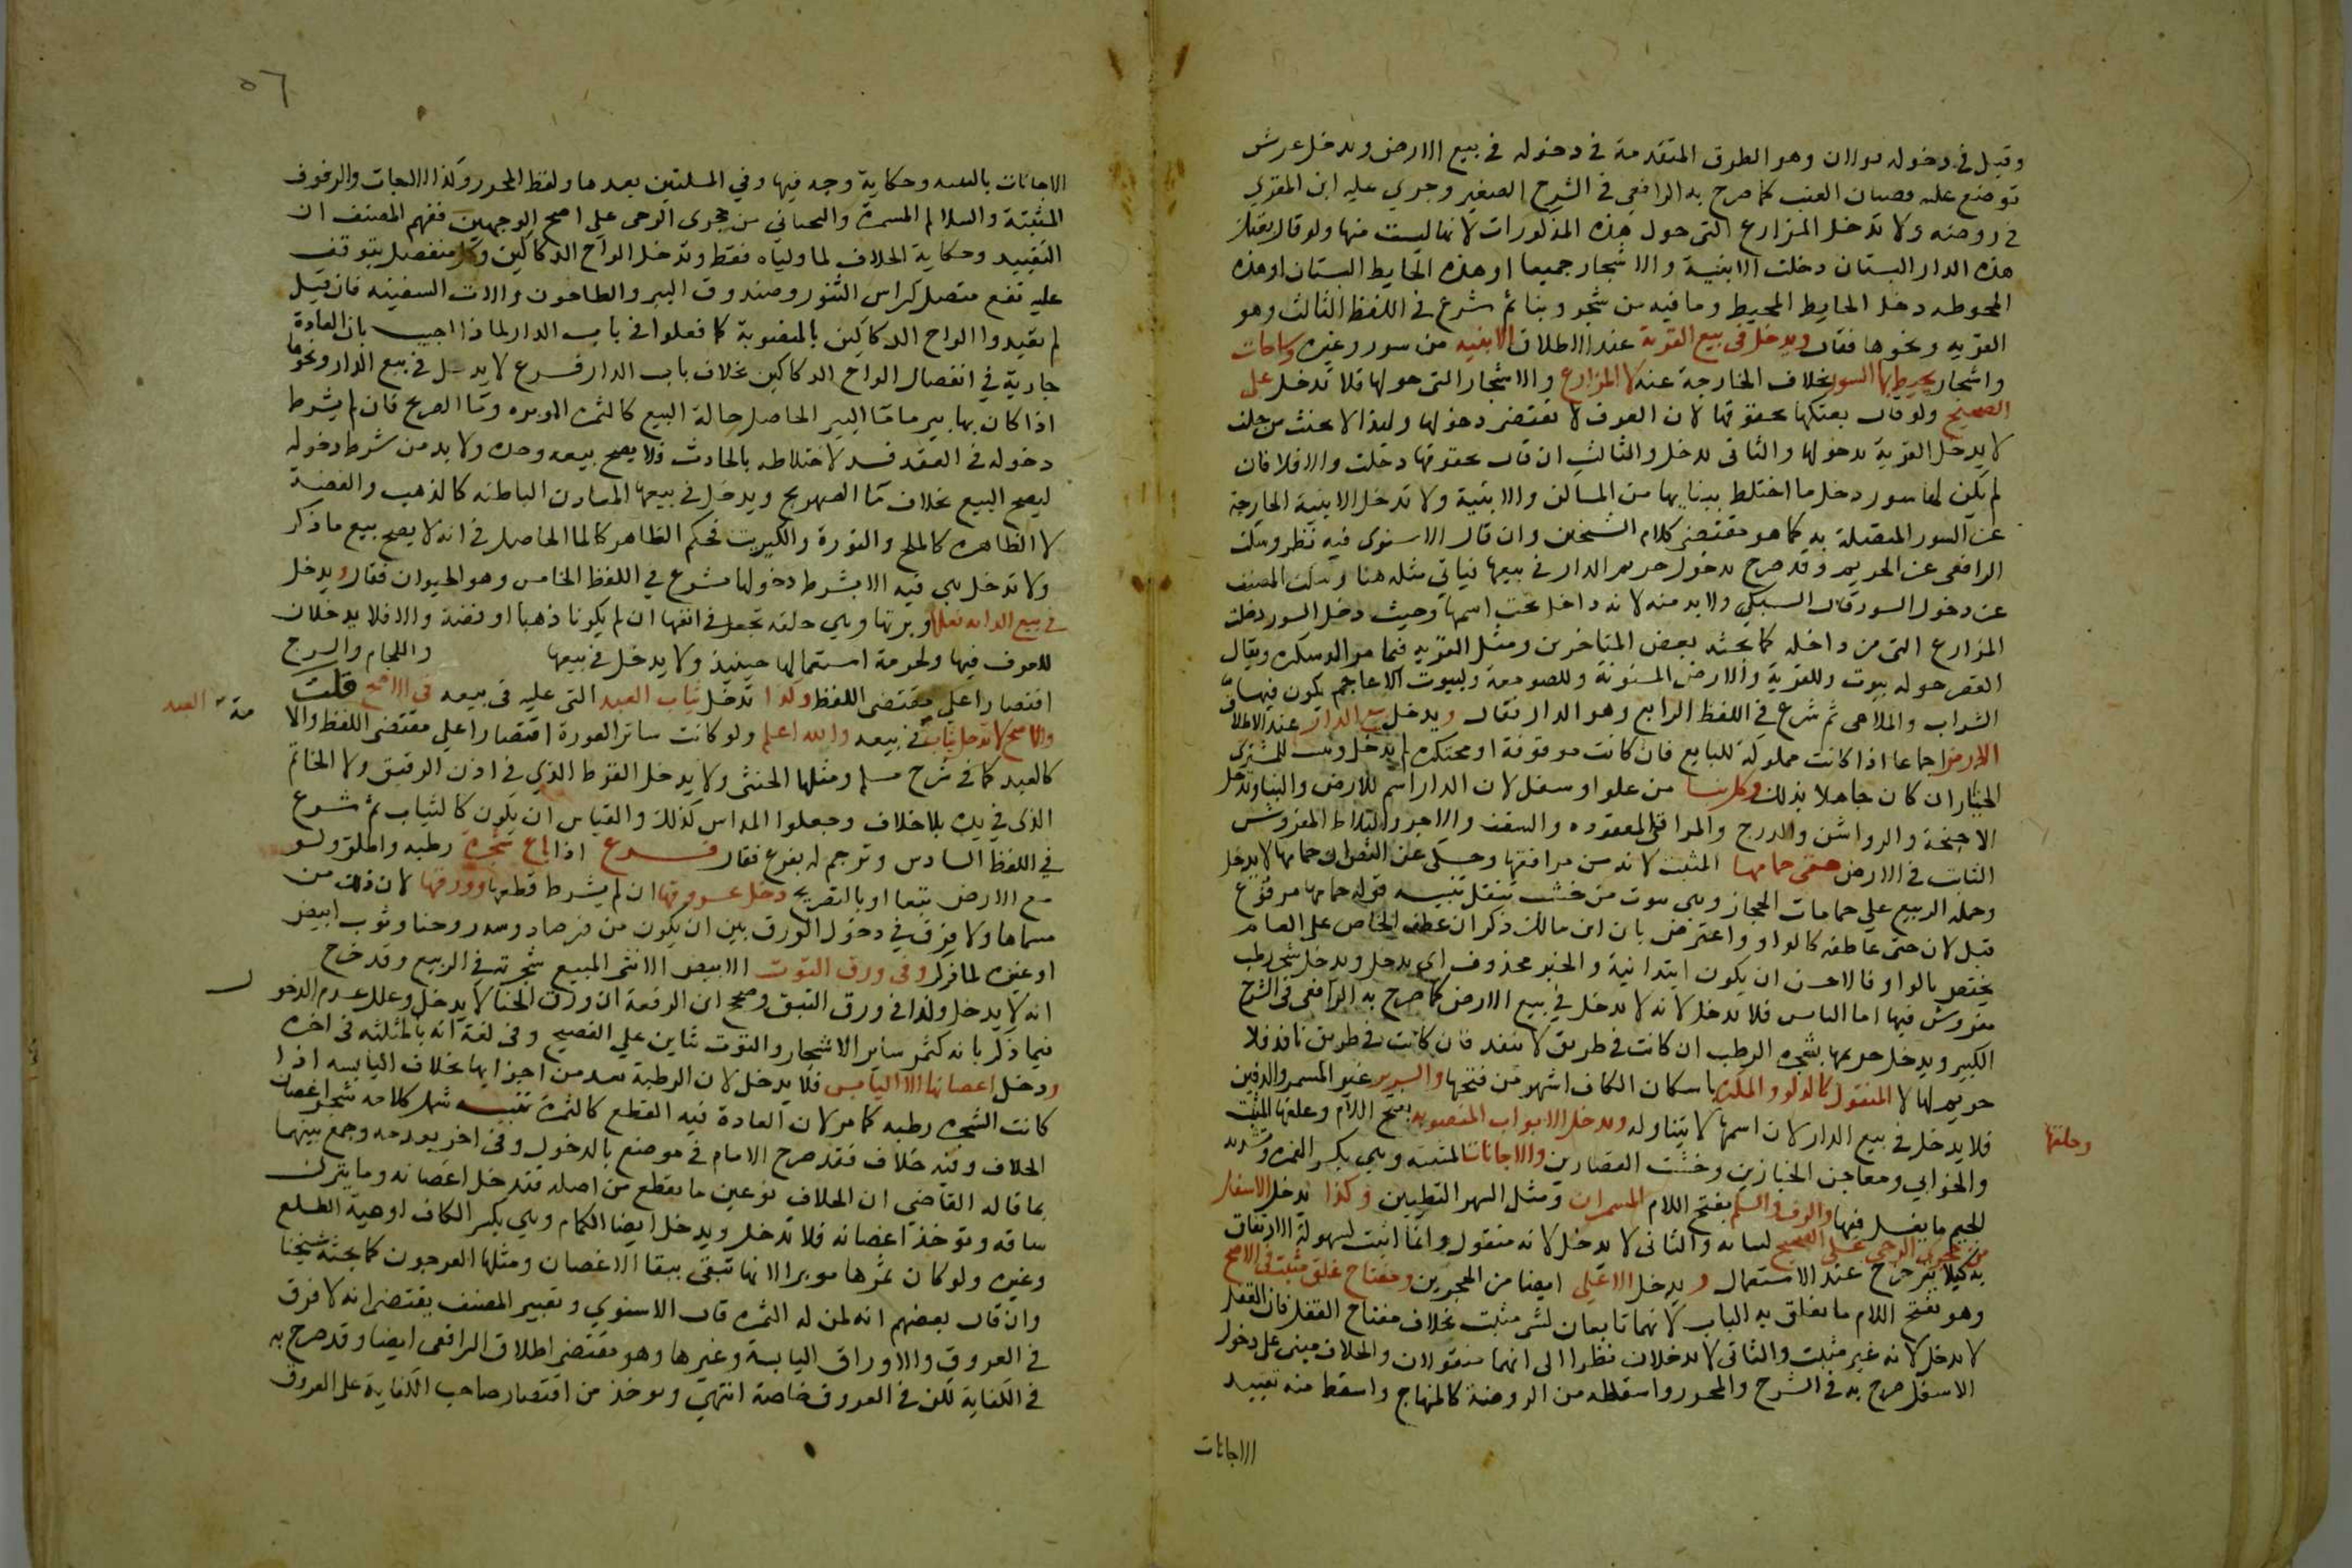 وقيل في دخوله قولان وهو الطرق المتقدمة في دخوله في بيع الارض ويدخل عرش
توضع عليه قضبان العنب كما صرح به الرافعي في الشرح الصغير وجرى عليه ابن المقري
في روضه ولا تدخل المزارع التي حول هذه المذكورات لانها ليست منها ولو قال بعتك
هذه الدار البستان دخلت الابنية والاشجار جميعا او هذه الحايط البستان او هذه
المحوطه دخل الحايط المحيط وما فيه من شجر وبنا ثم شرع في اللفظ الثالث وهو
القريه ونحوها فقال ويدخل في بيع القرية عند الاطلاق الابنيه من سور وغيره وساحات
واشجار يحيط بها السور بخلاف الخارجة عنه لا المزارع والاشجار التي حولها فلا تدخل على
الصحيح ولو قال بعتكها بحقوقها لان العرف لا يقتضى دخولها ولهذا لا يحنث من حلف
لا يدخل القرية بدخولها والثاني تدخل والثالث ان قال بحقوقها دخلت والا فلا فان
لم يكن لها سور دخل ما اختلط ببنايها من المساكن والابنية ولا تدخل الابنية الخارجة
عن السور المتصلة به كما هو مقتضى كلام الشيخين وان قال الاسنوى فيه نظر وسكت
الرافعى عن الحريم وقد صرح بدخول حريم الدار في بيعها فياتي مثله هنا وسكت المصنف
عن دخول السور قال السبكي ولا بد منه لانه داخل تحت اسمها وحيث دخل السور دخلت
المزارع التي من داخله كما بحثه بعض المتاخرين ومثل القريه فيما مر الدسكره ويقال
القصر حوله بيوت وللقرية وللارض المستوية وللصومعة ولبيوت الاعاجم يكون فيها
الشراب والملاهى ثم شرع في اللفظ الرابع وهو الدار فقال ويدخل في بيع الدار عند الاطلاق
الارض اجماعا اذا كانت مملوكة للبايع فان كانت موقوفة او محتكره لم تدخل وثبت للمشتري
الخيار ان كان جاهلا بذلك وكل بنا من علو او سفل لان الدار اسم للارض والبنا وتدخل
الاجنحة والرواشن والدرج والمراقى المعقوده والسقف والاجر والبلاط المفروش
الثابت في الارض حتى حمامها المثبت لانه من مرافقها وحكى عن النص ان حمامها لا يدخل
وحمله الربيع على حمامات الحجاز وهى بيوت من خشب تنقل تنبيه قوله حمامها مرفوع
قبل لان حتى عاطفه كالواو واعترض بان ابن مالك ذكر ان عطف الخاص على العام
يختص بالواو فالاحسن ان يكون ابتدائية والخبر محذوف اي يدخل ويدخل شجر رطب
مغروس فيها اما اليابس فلا يدخل لانه لا يدخل في بيع الارض كما صرح به الرافعى في الشرح
الكبير ويدخل حريمها بشجره الرطب ان كانت في طريق لا ينفذ فان كانت في طريق نافذ فلا
حريم لها لا المنقول كالدلو والبكرة باسكان الكاف اشهر من فتحها والسرير غير المسمر والدفين
فلا يدخل في بيع الدار لان اسمها لا يتناوله وتدخل الابواب المنصوبه بفتح اللام وغلقها المثبت
وحلقها
والخوابي ومعاجن الخبازين وخشب القصارين والاجانات المثبته وهى بكسر الهمزه وتشديد
الجيم ما يغسل فيها والرف والسلم بفتح اللام المسمران ومثل السمر التطيين وكذا تدخل الاسفل
من حجري الرحى على الصحيح لثباته والثاني لا يدخل لانه منقول وانما اثبت لسهولة الارتفاق
به كيلا يتزحزح عند الاستعمال ويدخل الاعلى ايضا من الحجرين ومفتاح غلق مثبت في الاصح
وهو بفتح اللام ما يغلق به الباب لانهما تابعان لشي مثبت بخلاف مفتاح القفل فان القفل
لا يدخل لانه غير مثبت والثاني لا يدخلان نظرا الى انهما منقولان والخلاف مبنى على دخول
الاسفل صرح به في الشرح والمحرر واسقطه من الروضة كالمنهاج واسقط منه تقييد
الاجانات
٥٦
الاجانات بالمثبته وحكاية وجه فيها وفي المسلتين بعدها ولفظ المحرر وكذا الاجانات والرفوف
المثبتة والسلالم المسمرة والتحتاني من حجرى الرحى على اصح الوجهين ففهم المصنف ان
التقييد وحكاية الخلاف لما ولياه فقط وتدخل الواح الدكاكين وكل منفصل يتوقف
عليه نفع متصل كراس التنور وصندوق البير والطاحون والات السفينه فان قيل
لم يقيدوا الواح الدكاكين بالمنصوبة كما فعلوا في باب الدار لماذا اجيب بان العادة
جارية في انفصال الواح الدكاكين بخلاف باب الدار فرع لا يدخل في بيع الدار ونحوها
اذا كان بها بير ماء ما البير الحاصل حالة البيع كالثمرة المؤبره وما الصهريج فان لم يشرط
دخوله في العقد فسد لاختلاطه بالحادث فلا يصح بيعه وحده ولا بد من شرط دخوله
ليصح البيع بخلاف ما الصهريج ويدخل في بيعها المعادن الباطنه كالذهب والفضة
لا الظاهره كالملح والنورة والكبريت فحكم الظاهر كالما الحاصل في انه لا يصح بيع ما ذكر
ولا تدخل هى فيه الا بشرط دخولها ثم شرع في اللفظ الخامس وهو الحيوان فقال ويدخل
في بيع الدابه نعلها وبرتها وهي حلقه تجعل في انفها ان لم يكونا ذهبا او فضة والا فلا يدخلان
للعرف فيها ولحرمة استعمالها حينيذ ولا يدخل في بيعها واللجام والسرج
اقتصارا على مقتضى اللفظ وكذا تدخل ثياب العبد التى عليه في بيعه في الاصح قلت
العبد
والاصح لا تدخل ثيابه في بيعه والله اعلم ولو كانت ساتر العورة اقتصارا على مقتضى اللفظ والامة
كالعبد كما في شرح مسلم ومثلها الخنثى ولا يدخل القرط الذي في اذن الرقيق ولا الخاتم
الذى في يده بلا خلاف وجعلوا المداس كذلك والقياس ان يكون كالثياب ثم شرع
في اللفظ السادس وترجم له بفرع فقال فرع اذا باع شجرة رطبه واطلق ولو
مع الارض تبعا او بالتصريح دخل عروقها ان لم يشرط قطعها وورقها لان ذلك من
مسماها ولا فرق في دخول الورق بين ان يكون من فرصاد وسدر وحنا وتوب ابيض
او غيره لما فرل وفى ورق التوت الابيض الانثى المبيع شجرته في الربيع وقد خرج
انه لا يدخل وكذا في ورق النبق وصحح ابن الرفعة ان ورق الحنا لا يدخل وعلل عدم الدخول
فيما ذكر بانه كثمر ساير الاشجار والتوت بتاين على الفصيح وفى لغة انه بالمثلثه في اخره
ودخل اغصانها الا اليابس فلا يدخل لان الرطبة تعد من اجزايها بخلاف اليابسه اذا
كانت الشجره رطبه كما مر لان العادة فيه القطع كالثمرة تنبيه شمل كلامه شجر اغصان
الخلاف وفيه خلاف فقد صرح الامام في موضع بالدخول وفى اخر بعدمه وجمع بينهما
بما قاله القاضى ان الخلاف نوعين ما يقطع من اصله فتدخل اغصانه وما يترك
ساقه وتوخذ اغصانه فلا تدخل ويدخل ايضا الكمام وهي بكسر الكاف اوعية الطلع
وغيره ولو كان ثمرها موبرا لانها تبقى ببقا الاغصان ومثلها العرجون كما بحثه شيخنا
وان قال بعضهم انه لمن له الثمره قال الاسنوي وتعبير المصنف يقتضى انه لا فرق
في العروق والاوراق اليابسة وغيرها وهو مقتضى اطلاق الرافعى ايضا وقد صرح به
في الكفاية لكن في العروق خاصة انتهى ويوخذ من اقتصار صاحب الكفاية على العروق